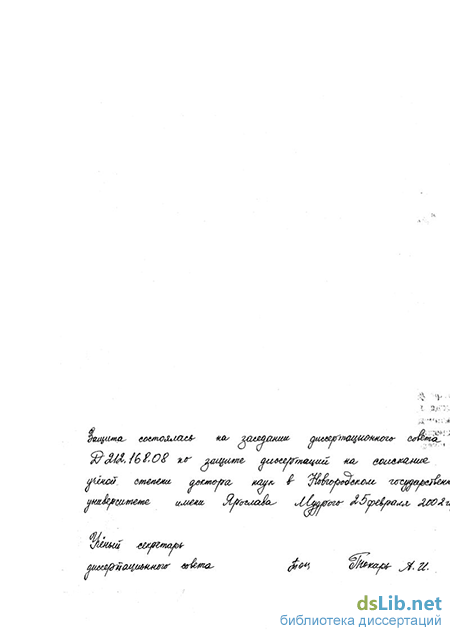 Защита состоялась на заседании диссертационного совета
Д 212.168.08 по защите диссертаций на соискание
учёной степени доктора наук в Новгородском государственн
университете имени Ярослава Мудрого 25 февраля 2002г
Учёный секретарь
диссертационного совета А.И.
dsLib.net
библиотека диссертаций